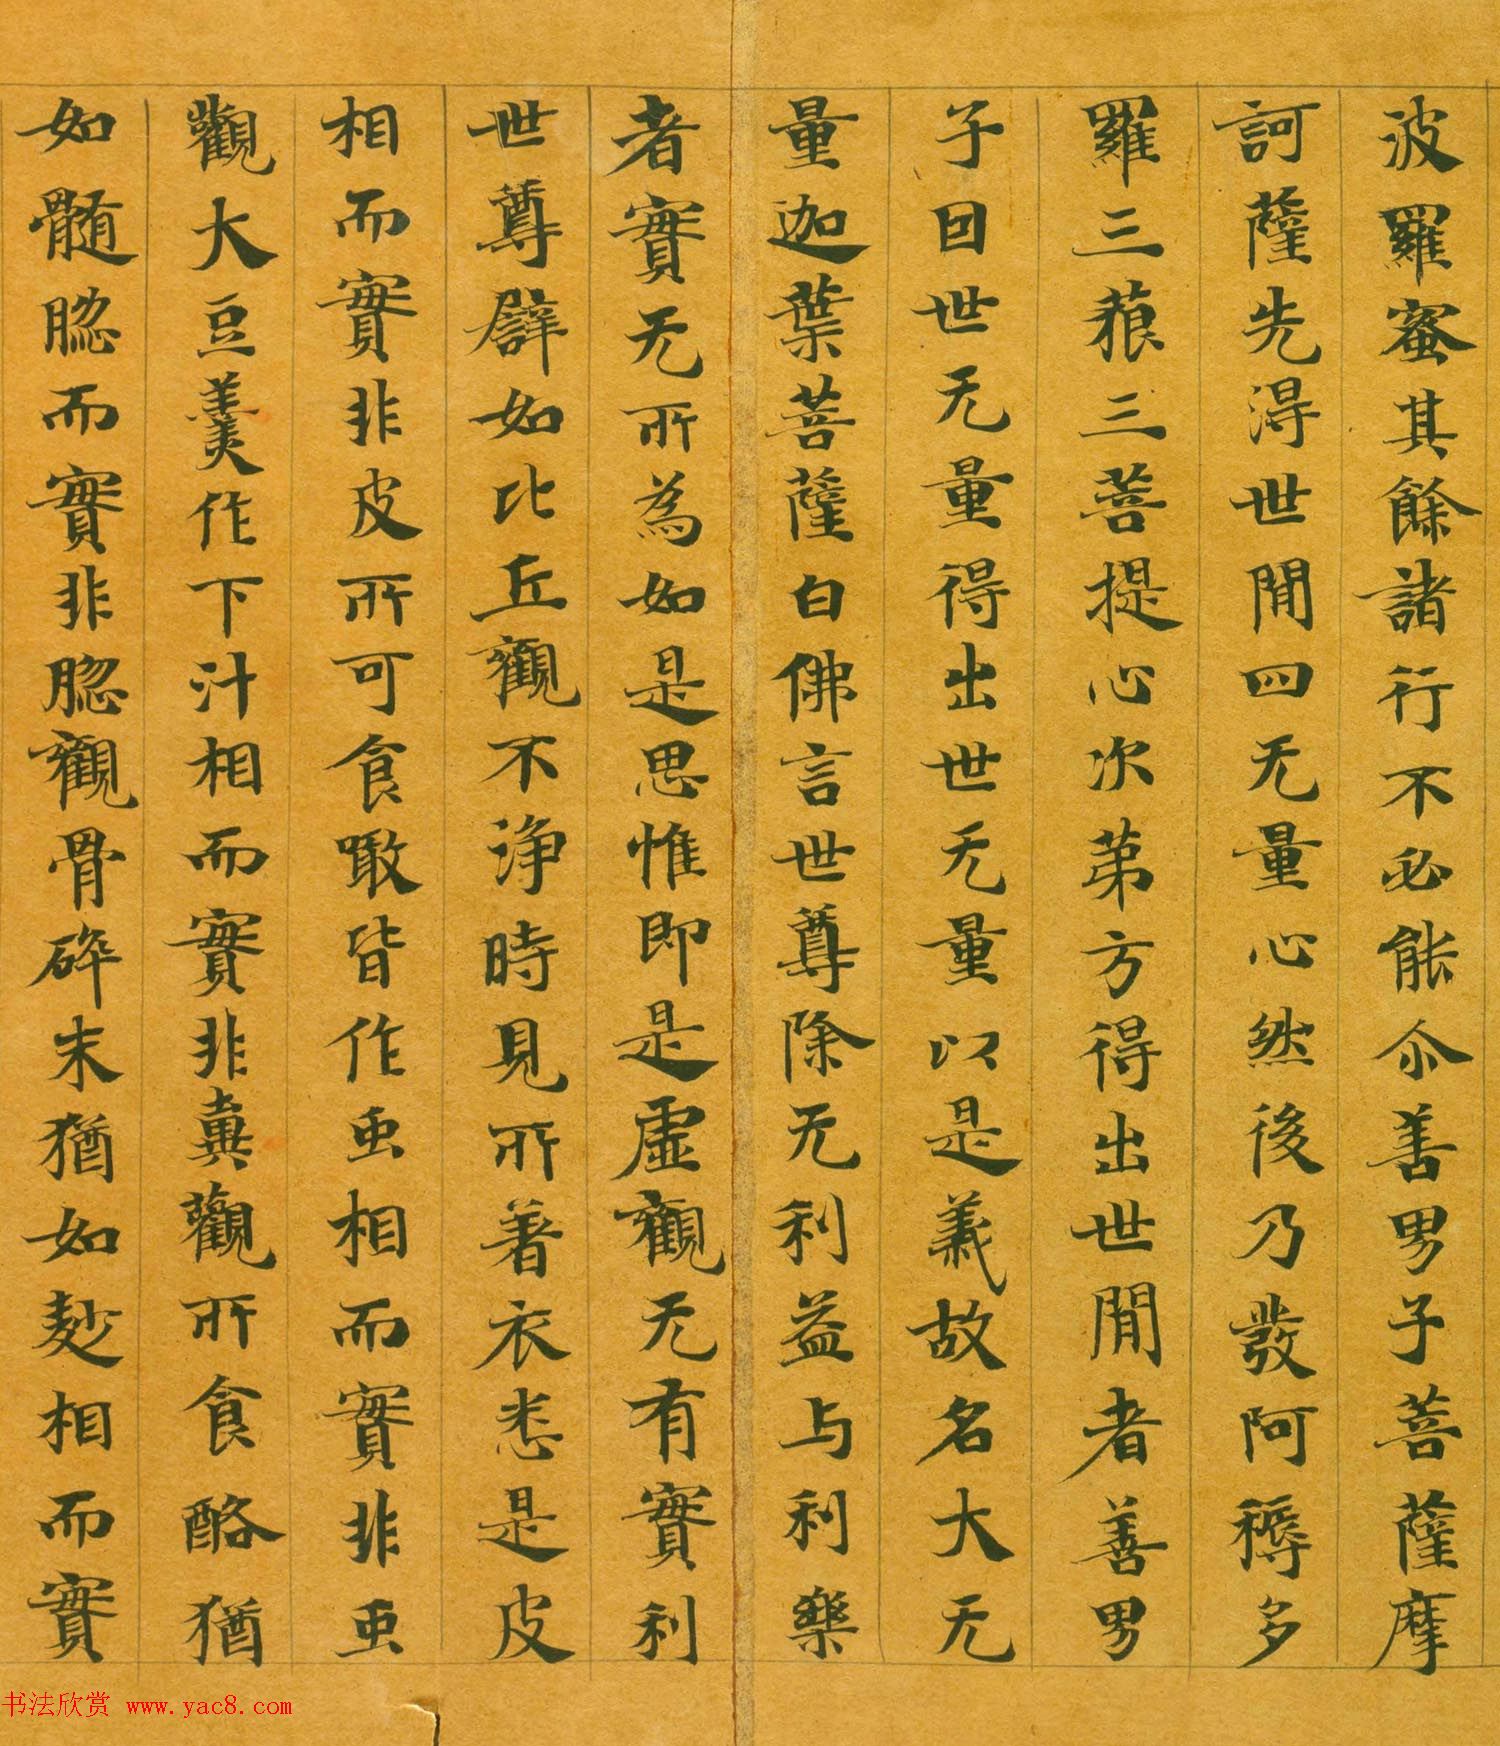 波羅蜜其餘諸行不必能尒善男子菩薩摩
訶薩先得世閒四无量心然後乃發阿耨多
羅三藐三菩提心次第方得出世閒者善男
子因世无量得出世无量以是義故名大无
量迦葉菩薩白佛言世尊除无利益与利樂
者實无所為如是思惟即是虛觀无有實利
世尊譬如比丘觀不淨時見所著衣悉是皮
相而實非皮所可食噉皆作虫相而實非虫
觀大豆羹作下汁相而實非糞觀所食酪猶
如髓腦而實非腦觀骨碎末猶如麨相而實
书法欣赏 www.yac8.com